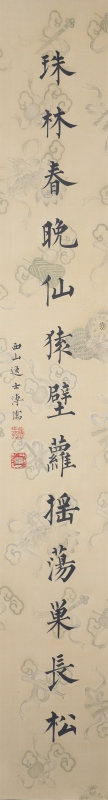 珠林春晚仙猿壁蘿摇蕩巢長松
西山逸士溥儒